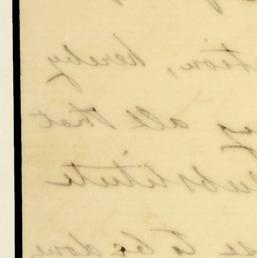 tion, hereby
all that
substitute
se to be done